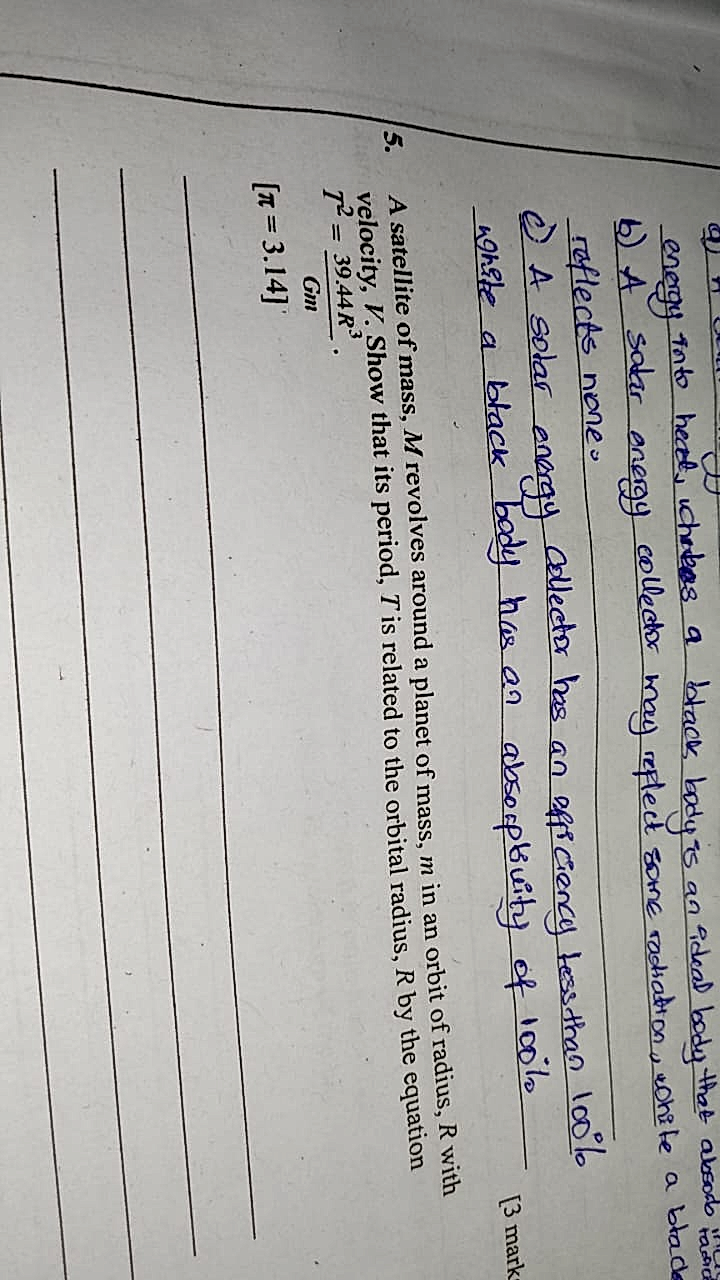 energy into heat, whereas a black body is an ideal body that absorb
b) A solar energy collector may reflect some radiation, while a black
reflects none.
c) A solar energy collector has an efficiency less than 100%
while a black body has an absorptivity of 100%
[3 mark
5. A satellite of mass, M revolves around a planet of mass, m in an orbit of radius, R with
velocity, V. Show that its period, T is related to the orbital radius, R by the equation
T² = 39.44R³ .
Gm
[π = 3.14]